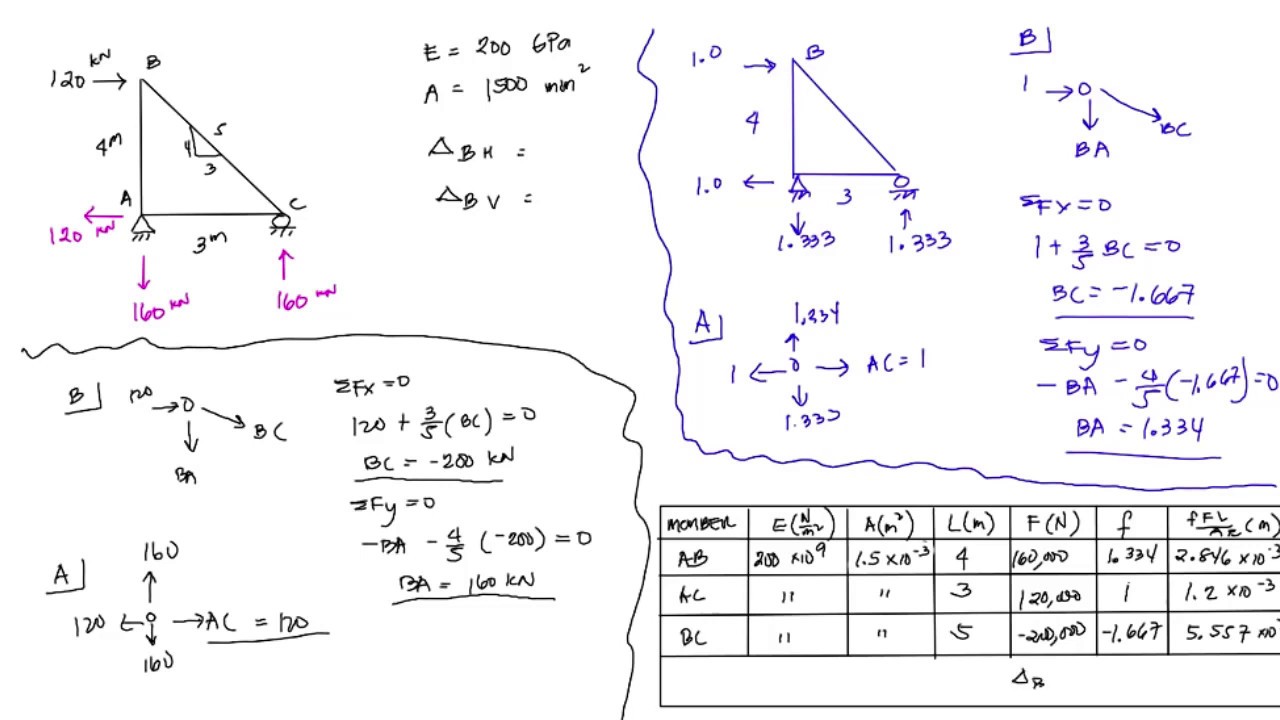 120 kN → B
4m
5
4
3
A
C
120 kN
3m
160 kN
160 kN
E = 200 GPa
A = 1500 mm²
Δ BH =
Δ BV =
1.0 → B
4
1.0 ←
3
1.333
1.333
A
1.334
1 ← → AC = 1
1.333
B
1 →
BC
BA
ΣFx = 0
1 + 3/5 BC = 0
BC = -1.667
ΣFy = 0
- BA - 4/5 (-1.667) = 0
BA = 1.334
B
120 →
BC
BA
A
160
120 ← → AC = 120
160
ΣFx = 0
120 + 3/5 (BC) = 0
BC = -200 kN
ΣFy = 0
-BA - 4/5 (-200) = 0
BA = 160 kN
MEMBER E(N/m²) A(m²) L(m) F(N) f fFL/AE (m)
AB 200 ×10⁹ 1.5 ×10⁻³ 4 160,000 1.334 2.846 ×10⁻³
AC " " 3 120,000 1 1.2 ×10⁻³
BC " " 5 -200,000 -1.667 5.557 ×10
Δ B